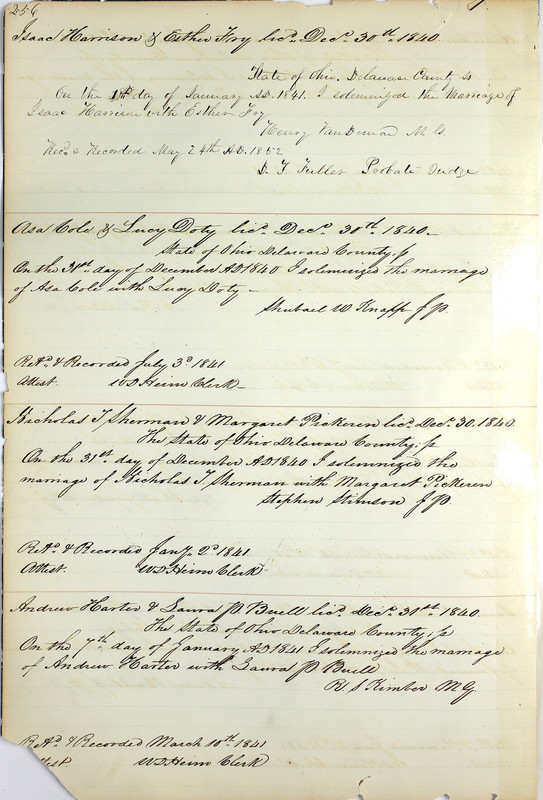 256
Isaac Harrison & Esther Fry licd. Decr. 30th. 1840.
State of Ohio, Delaware County ss
On the 1st day of January AD. 1841. I solemnized the Marriage of
Isaac Harrison with Esther Fry
Henry VanDeman M.G.
Recd & Recorded May 24th AD. 1852
D. T. Fuller Probate Judge
Asa Cole & Lucy Doty licd. Decr. 30th. 1840.
State of Ohio Delaware County, ss
On the 31st. day of December AD 1840 I solemnized the marriage
of Asa Cole with Lucy Doty
Shubael W. Knapp J P.
Retd. & Recorded July 3d. 1841
Attest. W D Heim Clerk
Nicholas T Sherman & Margaret Pickeren licd. Decr. 30. 1840.
The State of Ohio Delaware County, ss
On the 31st. day of December AD 1840 I solemnized the
marriage of Nicholas T. Sherman with Margaret Pickeren
Stephen Stimson J P.
Retd. & Recorded Jany. 2d. 1841.
Attest. W D Heim Clerk
Andrew Harter & Laura P. Buell licd. Decr. 31st. 1840.
The State of Ohio Delaware County, ss
On the 7th. day of January AD 1841 I solemnized the marriage
of Andrew Harter with Laura P Buell
R. S Kimber MG
Retd. & Recorded March 10th. 1841
ttest. W D Heim Clerk